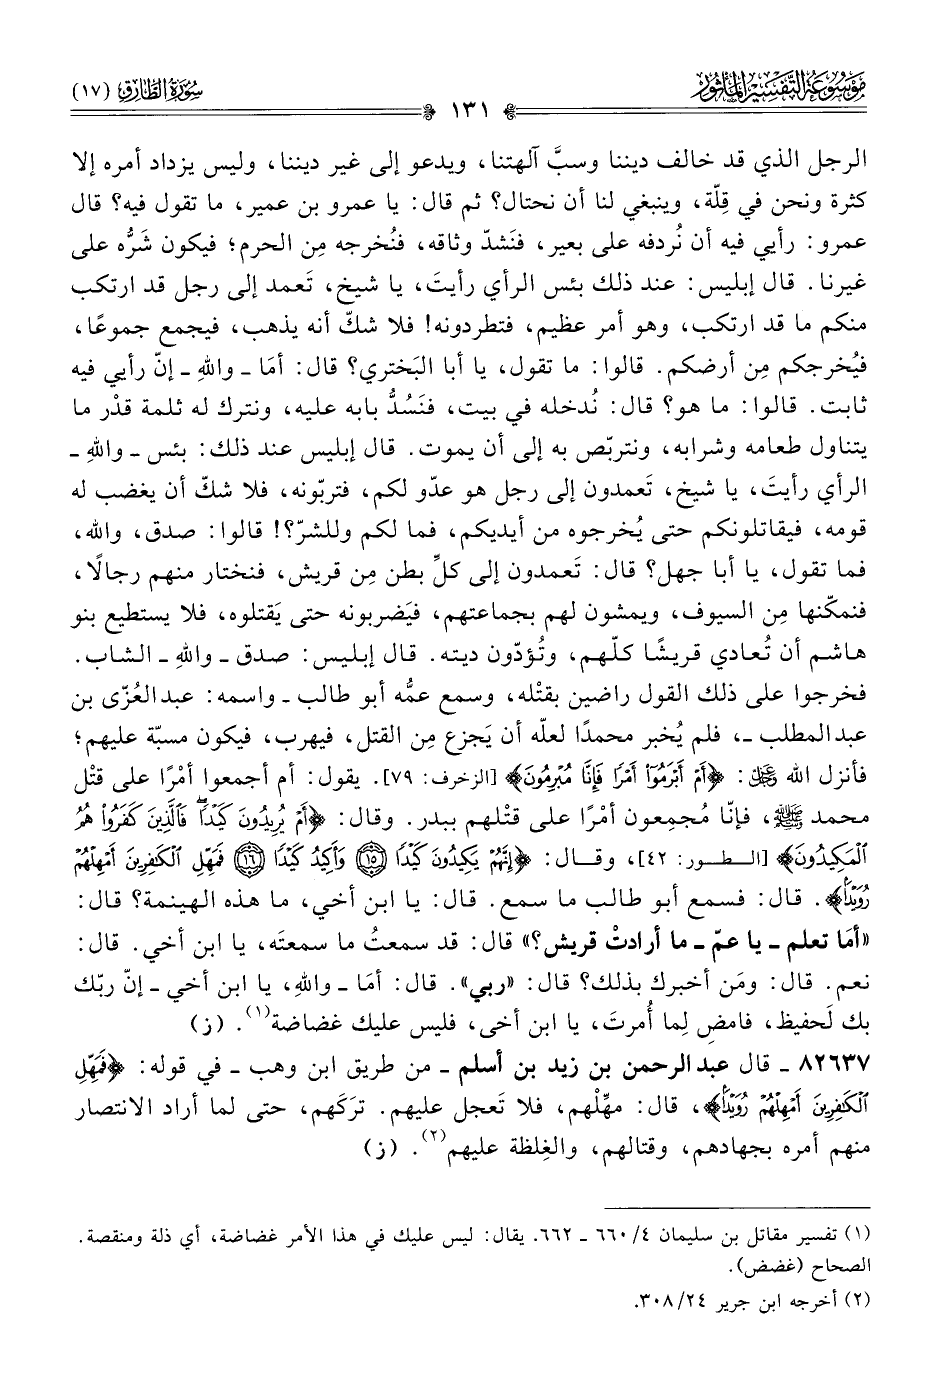 موسوعة التفسير المأثور
سورة الطارق (١٧)
١٣١
الرجل الذي قد خالف ديننا وسبَّ آلهتنا، ويدعو إلى غير ديننا، وليس يزداد أمره إلا
كثرة ونحن في قِلّة، وينبغي لنا أن نحتال؟ ثم قال: يا عمرو بن عمير، ما تقول فيه؟ قال
عمرو: رأيي فيه أن نُردفه على بعير، فنَشدّ وثاقه، فنُخرجه مِن الحرم؛ فيكون شَرُّه على
غيرنا. قال إبليس: عند ذلك بئس الرأي رأيتَ، يا شيخ، تَعمد إلى رجل قد ارتكب
منكم ما قد ارتكب، وهو أمر عظيم، فتطردونه! فلا شكّ أنه يذهب، فيجمع جموعًا،
فيُخرجكم مِن أرضكم. قالوا: ما تقول، يا أبا البَختري؟ قال: أمَا ـ واللهِ ـ إنّ رأيي فيه
ثابت. قالوا: ما هو؟ قال: نُدخله في بيت، فنَسُدُّ بابه عليه، ونترك له ثلمة قدْر ما
يتناول طعامه وشرابه، ونتربّص به إلى أن يموت. قال إبليس عند ذلك: بئس ـ واللهِ ـ
الرأي رأيتَ، يا شيخ، تَعمدون إلى رجل هو عدّو لكم، فتربّونه، فلا شكّ أن يغضب له
قومه، فيقاتلونكم حتى يُخرجوه من أيديكم، فما لكم وللشرّ؟! قالوا: صدق، والله،
فما تقول، يا أبا جهل؟ قال: تَعمدون إلى كلِّ بطن مِن قريش، فنختار منهم رجالًا،
فنمكّنها مِن السيوف، ويمشون لهم بجماعتهم، فيَضربونه حتى يَقتلوه، فلا يستطيع بنو
هاشم أن تُعادي قريشًا كلّهم، وتُؤدّون ديته. قال إبليس: صدق ـ واللهِ ـ الشاب.
فخرجوا على ذلك القول راضين بقتْله، وسمع عمُّه أبو طالب ـ واسمه: عبد العُزّى بن
عبد المطلب ـ، فلم يُخبر محمدًا لعلّه أن يَجزع مِن القتل، فيهرب، فيكون مسبّة عليهم؛
فأنزل الله ﷿: ﴿أَمْ أَبْرَمُوٓا۟ أَمْرًا فَإِنَّا مُبْرِمُونَ﴾ [الزخرف: ٧٩]. يقول: أم أجمعوا أمْرًا على قتْل
محمد ﷺ، فإنّا مُجمِعون أمْرًا على قتْلهم ببدر. وقال: ﴿أَمْ يُرِيدُونَ كَيْدًاۖ فَٱلَّذِينَ كَفَرُوا۟ هُمُ
ٱلْمَكِيدُونَ﴾ [الطور: ٤٢]، وقال: ﴿إِنَّهُمْ يَكِيدُونَ كَيْدًا ۝١٥ وَأَكِيدُ كَيْدًا ۝١٦ فَمَهِّلِ ٱلْكَـٰفِرِينَ أَمْهِلْهُمْ
رُوَيْدًۢا﴾. قال: فسمع أبو طالب ما سمع. قال: يا ابن أخي، ما هذه الهينمة؟ قال:
«أمَا تعلم ـ يا عمّ ـ ما أرادتْ قريش؟» قال: قد سمعتُ ما سمعتَه، يا ابن أخي. قال:
نعم. قال: ومَن أخبرك بذلك؟ قال: «ربي». قال: أمَا ـ واللهِ، يا ابن أخي ـ إنّ ربّك
بك لَحفيظ، فامضِ لِما أُمرتَ، يا ابن أخى، فليس عليك غضاضة(١). (ز)
٨٢٦٣٧ ـ قال عبد الرحمن بن زيد بن أسلم ـ من طريق ابن وهب ـ في قوله: ﴿فَمَهِّلِ
ٱلْكَـٰفِرِينَ أَمْهِلْهُمْ رُوَيْدًۢا﴾، قال: مهِّلْهم، فلا تَعجل عليهم. تركَهم، حتى لما أراد الانتصار
منهم أمره بجهادهم، وقتالهم، والغِلظة عليهم(٢). (ز)
(١) تفسير مقاتل بن سليمان ٤/ ٦٦٠ ـ ٦٦٢. يقال: ليس عليك في هذا الأمر غضاضة، أي ذلة ومنقصة.
الصحاح (غضض).
(٢) أخرجه ابن جرير ٢٤/ ٣٠٨.